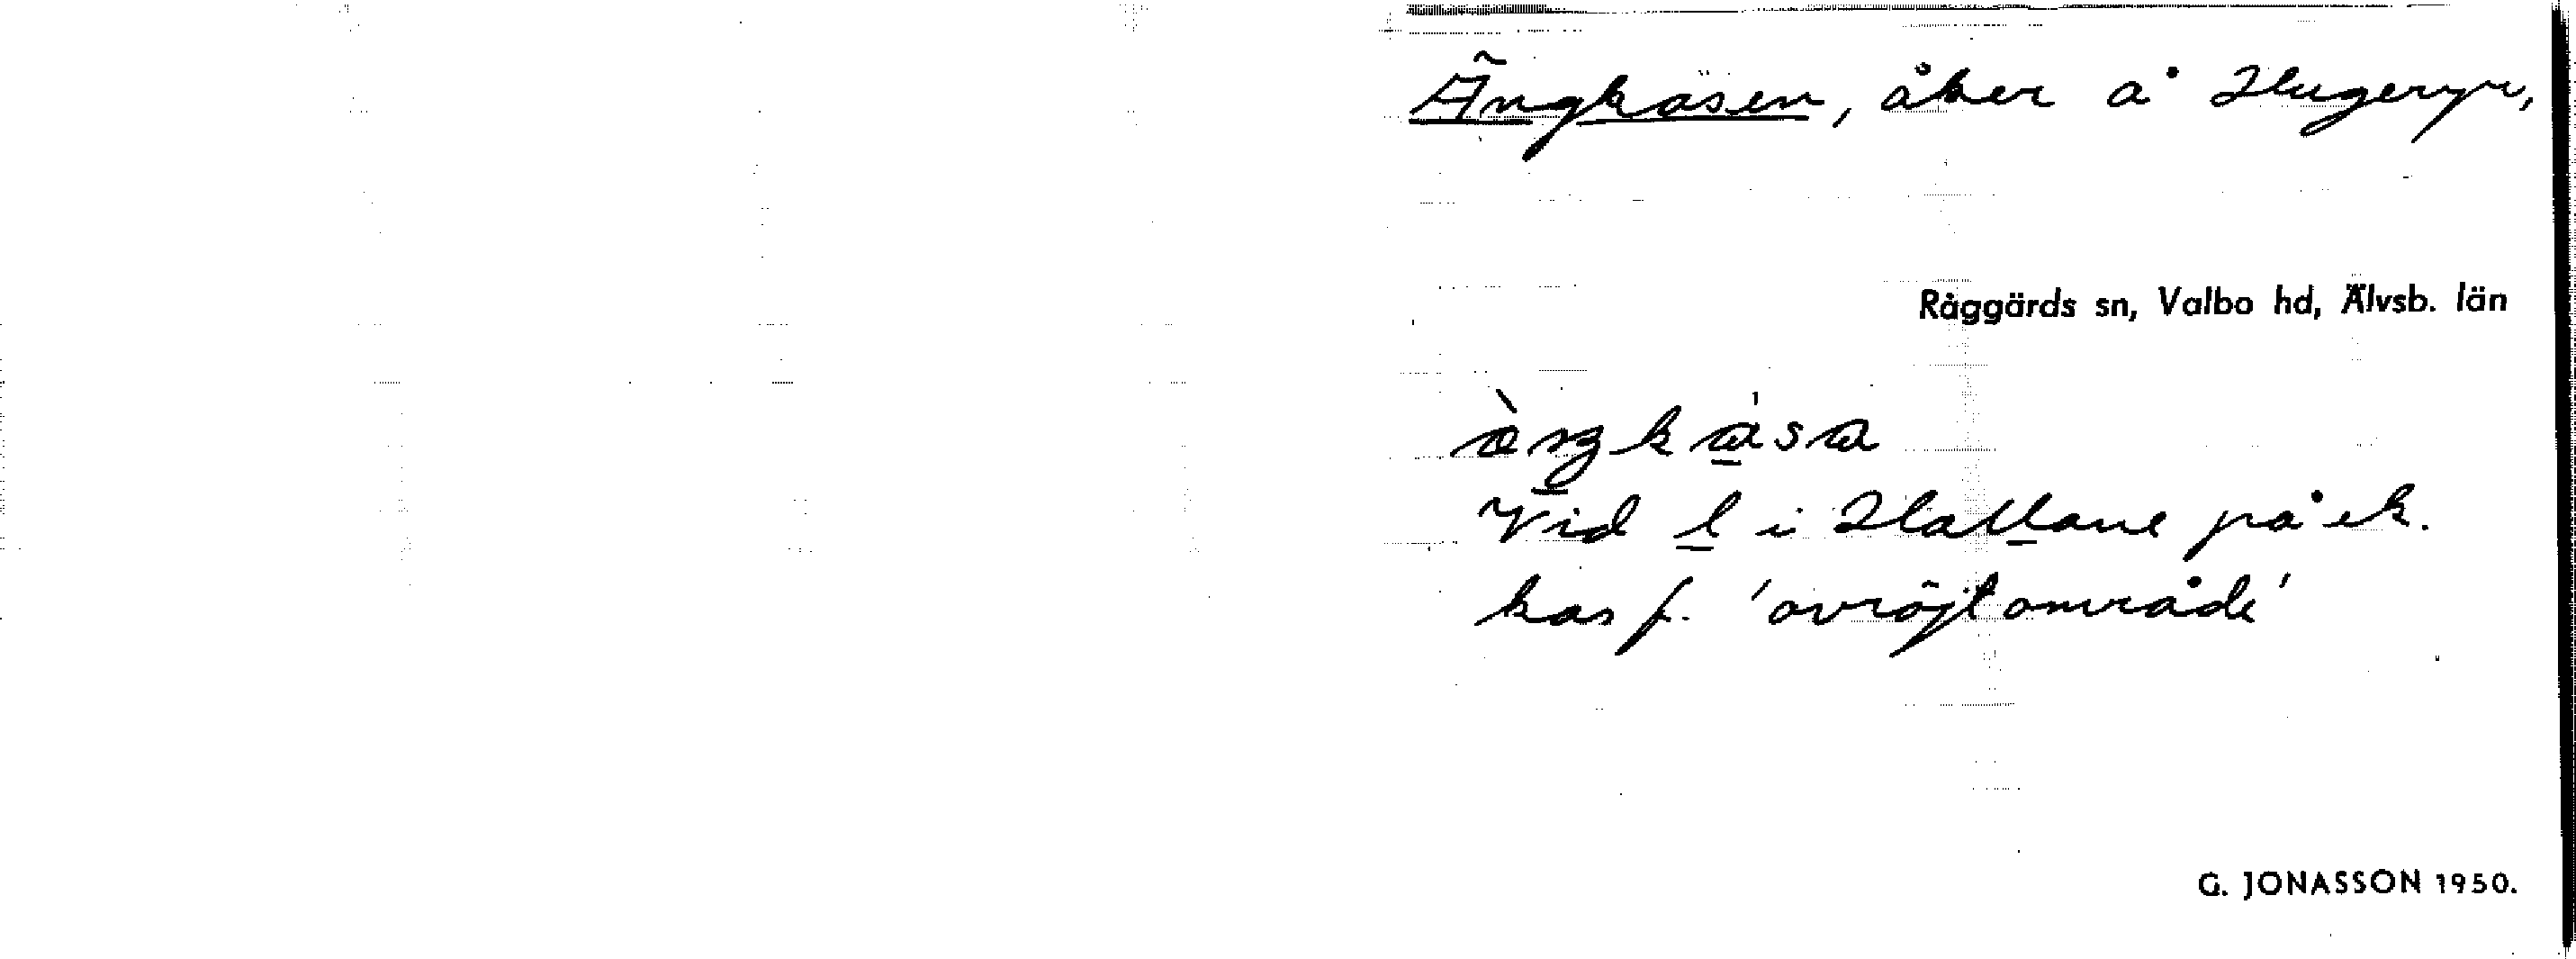 Ängkasen, åker å Hugeryr,
Råggärds sn, Valbo hd, Älvsb. län
Vid l i Hallane på ek.
kas f. 'avröjt område'
G. JONASSON 1950.